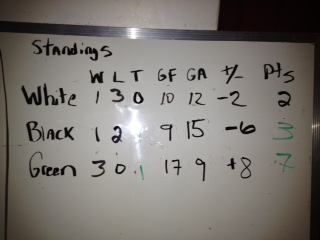 Standings
W L T GF GA +/- Pts
White 1 3 0 10 12 -2 2
Black 1 2 9 15 -6 3
Green 3 0 1 17 9 +8 7